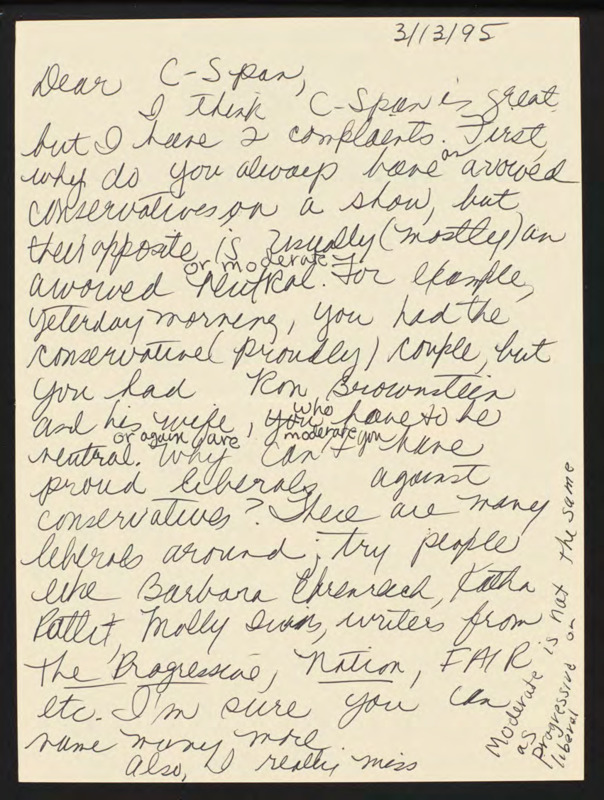 3/13/95
Dear C-Span,
I think C-Span is great
but I have 2 complaints. First,
why do you always have an avowed
conservatives on a show, but
their opposite is usually (mostly) an
avowed neutral or moderate. For example,
yesterday morning, you had the
conservative (proudly) couple, but
you had Ron Brownstein
and his wife, who have to be
neutral. or again are moderate Why can't you have
proud liberals against
conservatives? There are many
liberals around; try people
like Barbara Ehrenreich, Katha
Pollit, Molly Ivins, writers from
the Progressive, Nation, FAIR
etc. I'm sure you can
name many more.
Also, I really miss
Moderate is not the same
as progressive or
liberal